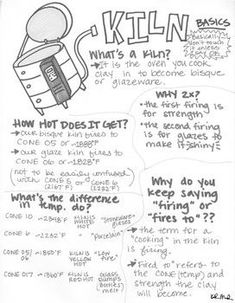 KILN
BASICS
What's a kiln?
→ It is the oven you cook
clay in to become bisque
or glazeware.
HOW HOT DOES IT GET?
→ our bisque kiln fires to
CONE 05 or
→ our glaze kiln fires to
CONE 06 or 1828°F
not to be easily confused
with CONE 5 or CONE 6
(2167°F) (2232°F)
WHY 2x?
• the first firing is
for strength
• the second firing
is for glazes to
make it shiny
What's the difference
in temp. do?
CONE 10
KILN IS
WHITE
HOT
CONE 6
"porcelain"
CONE 05/
06
KILN IS
"low
fire"
CONE 017
KILN IS
RED HOT
Why do you
keep saying
"firing" or
"fires to"??
→ the term for
a "cooking" in the kiln
is firing.
→ "Fired to" refers to
the CONE (temp) and
strength the clay
will become.